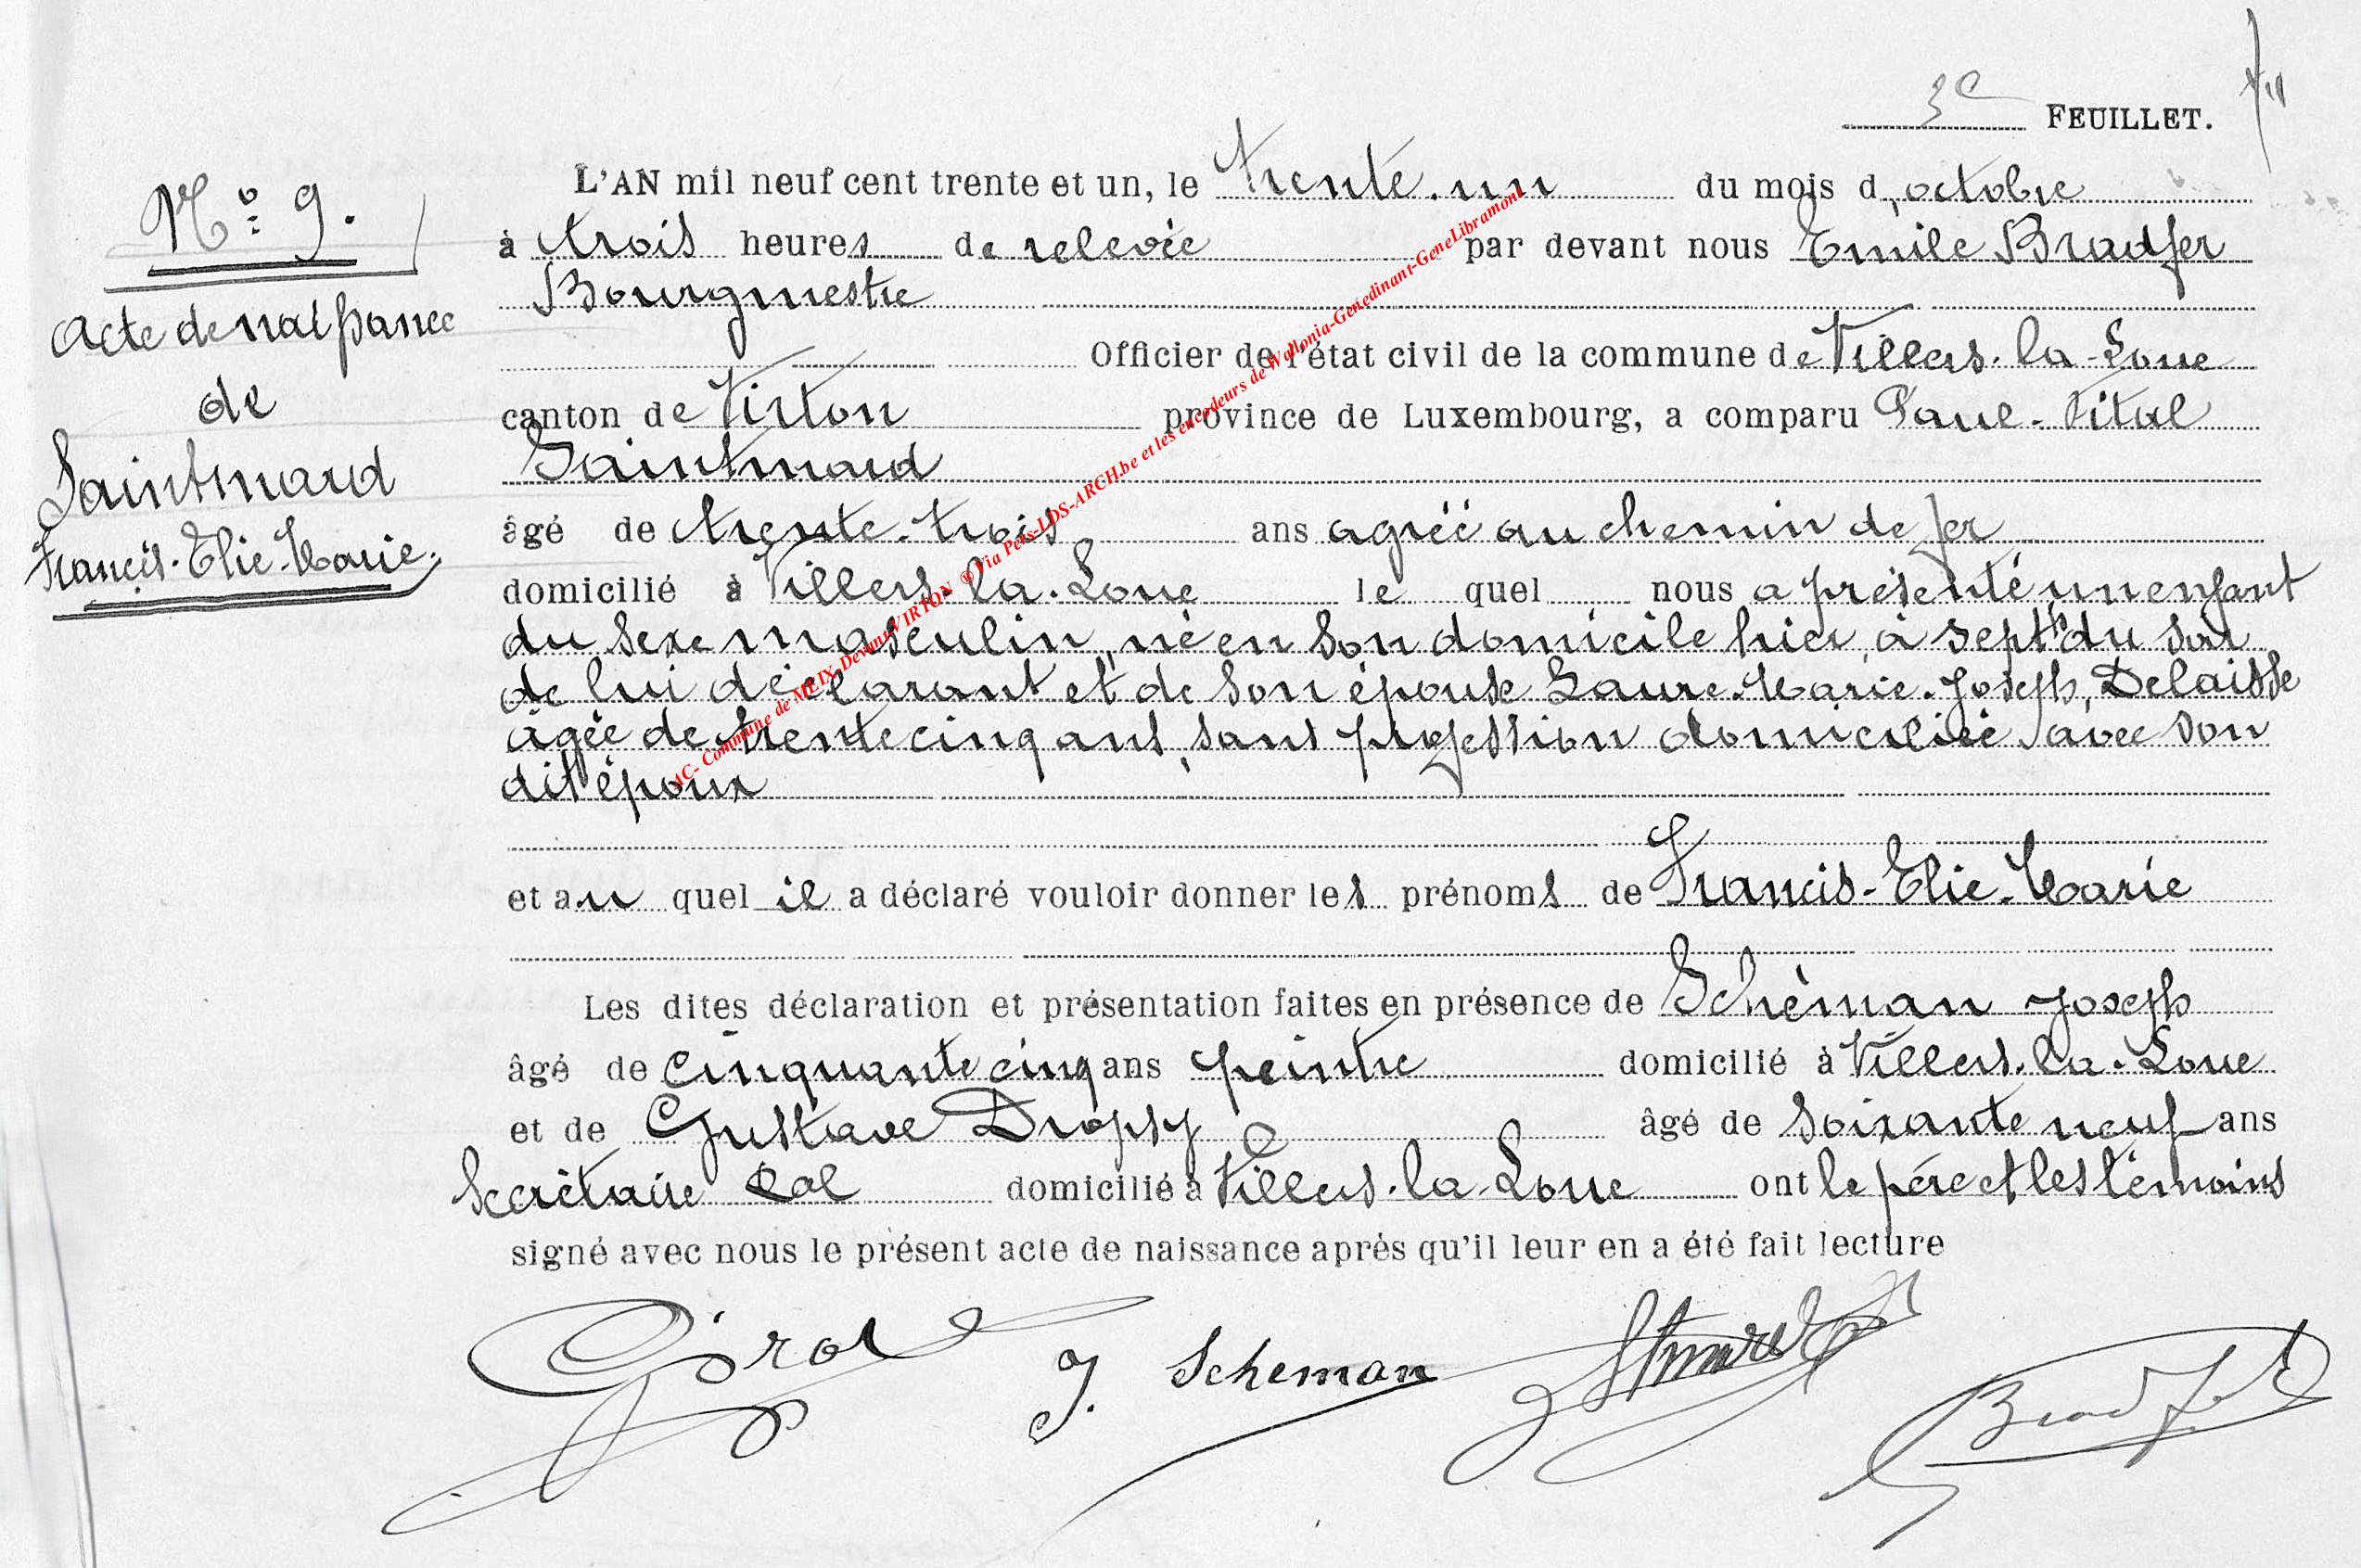 3e FEUILLET.
N° 9.
Acte de naissance
de
Saintmard
Francis-Elie-Marie
L'AN mil neuf cent trente et un, le trente-un du mois d'octobre
à trois heures de relevée par devant nous Emile Bradfer
Bourgmestre
Officier de l'état civil de la commune de Villers-la-Loue
canton de Virton province de Luxembourg, a comparu Paul-Vital
Saintmard
âgé de trente-trois ans agréé au chemin de fer
domicilié à Villers-la-Loue le quel nous a présenté un enfant
du sexe masculin, né en son domicile hier, à sept h du soir
de lui déclarant et de son épouse Laure-Marie-Joseph, Delaisse
âgée de trente cinq ans, sans profession domiciliée avec son
dit époux
et au quel il a déclaré vouloir donner les prénoms de Francis-Elie-Marie
Les dites déclaration et présentation faites en présence de Schéman Joseph
âgé de cinquante cinq ans peintre domicilié à Villers-la-Loue
et de Gustave Dropsy âgé de soixante neuf ans
Secrétaire Cal domicilié à Villers-la-Loue ont le père et les témoins
signé avec nous le présent acte de naissance après qu'il leur en a été fait lecture
J. Scheman
Bradfer
AC- Commune de MEIX-Devant-VIRTON ©Via Pers-LDS-ARCH.be et les encodeurs de Wallonia-Genedinant-GeneLibramont